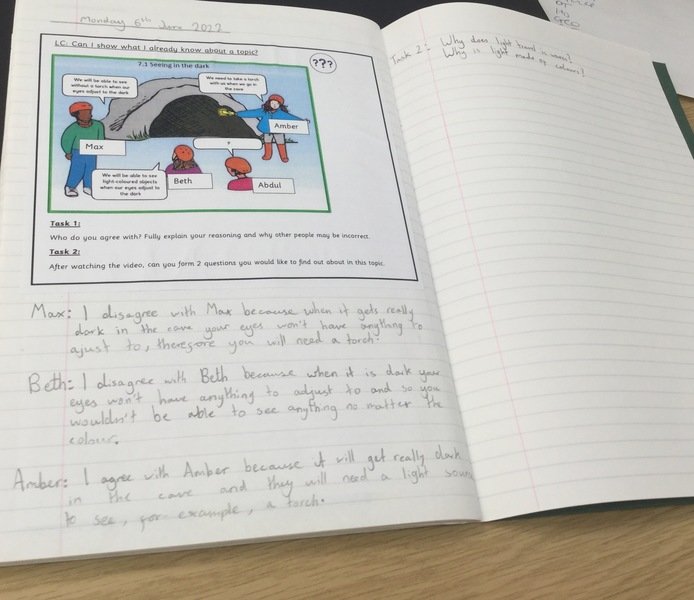 Monday 6th June 2022
LC: Can I show what I already know about a topic?
???
7.1 Seeing in the dark
We will be able to see
without a torch when our
eyes adjust to the dark
We need to take a torch
with us when we go in
the cave
Amber
Max
?
We will be able to see
light-coloured objects
when our eyes adjust to
the dark
Beth
Abdul
Task 1:
Who do you agree with? Fully explain your reasoning and why other people may be incorrect.
Task 2:
After watching the video, can you form 2 questions you would like to find out about in this topic.
Max: I disagree with Max because when it gets really
dark in the cave your eyes won't have anything to
ajust to, therefore you will need a torch.
Beth: I disagree with Beth because when it is dark your
eyes won't have anything to adjust to and so you
wouldn't be able to see anything no matter the
colour.
Amber: I agree with Amber because it will get really dark
in the cave and they will need a light sour
to see, for example, a torch.
Task 2: Why does light travel in waves?
Why is light made of colours?